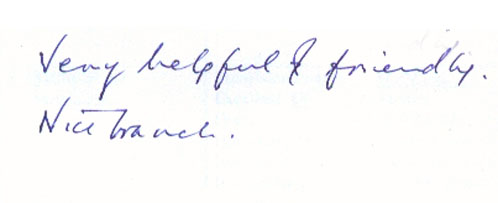 Very helpful & friendly.
Nice branch.